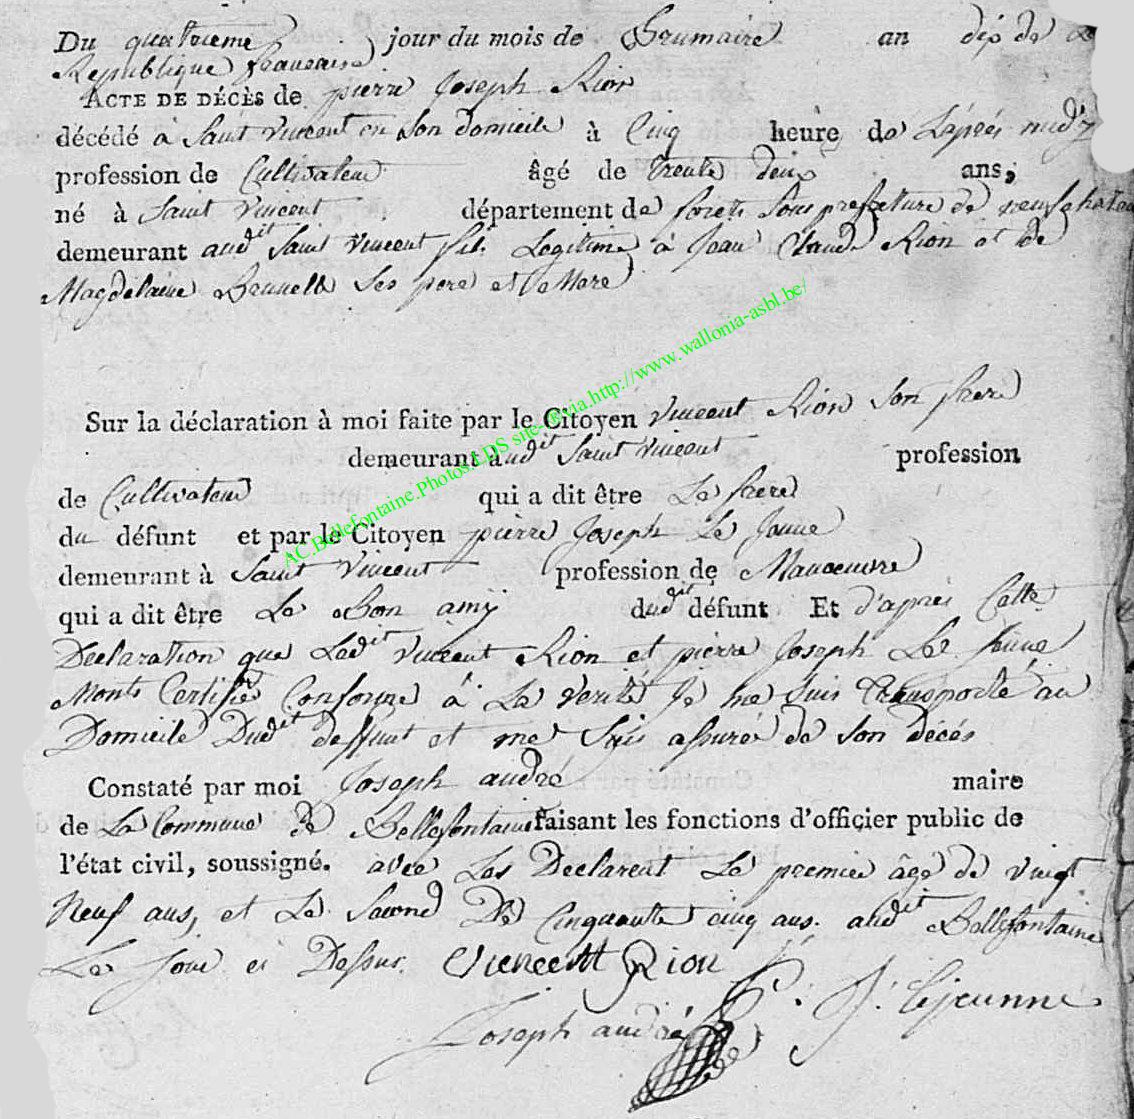 Du quatrieme jour du mois de Brumaire an dix de La
Republique francaise
ACTE DE DÉCÈS de pierre Joseph Rion
décédé à Saint Vincent en son domicile à Cinq heure de L'apres midy
profession de Cultivateur âgé de trente deux ans,
né à Saint Vincent département de forets Sous prefecture de neufchateau
demeurant audit Saint Vincent fils Legitime à Jean Claude Rion et de
Magdelaine Ses pere et Mere
Sur la déclaration à moi faite par le Citoyen Vincent Rion Son frere
demeurant audit Saint Vincent profession
de Cultivateur qui a dit être Le frere
du défunt et par le Citoyen pierre Joseph Le Jeune
demeurant à Saint Vincent profession de Manoeuvre
qui a dit être Le Bon amy dudit défunt Et d'après Cette
Declaration que Ledit Vincent Rion et pierre Joseph Le Jeune
Monts Certifié Conforme à La Verité Je me Suis Transporté au
Domicile Dudit deffunt et me Suis assuré de Son Décés
Constaté par moi Joseph andré maire
de La Commune de Bellefontaine faisant les fonctions d'officier public de
l'état civil, soussigné. avec Les Declarent Le premier âgé de vingt
Neuf ans, et Le Second De Cinquante cinq ans. audit Bellefontaine
Le Jour et Dessus. Vincent Rion
P. J. lejeunne
Joseph andré
AC.Bellefontaine.Photos.LDS site-®via.http://www.wallonia-asbl.be/